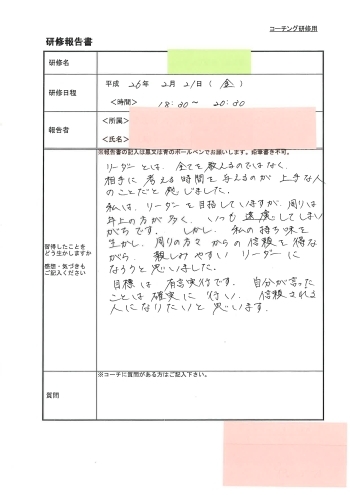 コーチング研修用
研修報告書
研修名
研修日程
平成 26年 2月 21日 ( 金 )
＜時間＞ 18:30 ～ 20:30
報告者
＜所属＞
＜氏名＞
※報告書の記入は黒又は青のボールペンでお願いします。鉛筆書き不可。
習得したことを
どう生かしますか
感想・気づきも
ご記入ください
リーダーとは、全てを教えるのではなく、
相手に考える時間を与えるのが上手な人
のことだと感じました。
私は、リーダーを目指していますが、周りは
年上の方が多く、いつも遠慮してしまい
がちです。しかし、私の持ち味を
生かし、周りの方々からの信頼を得な
がら、親しみやすいリーダーに
なろうと思いました。
目標は有言実行です。自分が言った
ことは確実に行い、信頼される
人になりたいと思います。
※コーチに質問がある方はご記入下さい。
質問